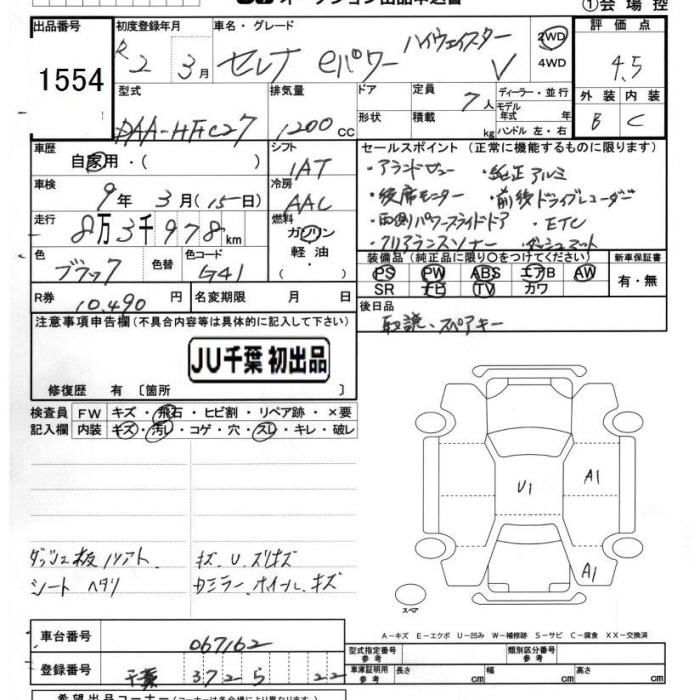 ①会場控
出品番号 1554
初度登録年月 R2 3月
車名・グレード セレナ eパワー ハイウェイスターV
2WD
4WD
評価点 4.5
型式 DAA-HFC27
排気量 1200cc
ドア
定員 7人
形状
積載 kg
ディーラー・並行
モデル年式 年
ハンドル 左・右
外装 内装
B C
車歴 自家用・( )
シフト IAT
セールスポイント (正常に機能するものに限ります)
・アランドビュー ・純正アルミ
・後席モニター ・前後ドライブレコーダー
・両側パワースライドドア ・ETC
・クリアランスソナー ・ダッシュマット
車検 9年 3月(15日)
冷房 AAC
走行 8万3千978km
燃料 ガソリン・軽油・( )
色 ブラック
色替
色コード G41
装備品(純正品に限り○をつけてください)
新車保証書
PS PW ABS エアB AW
SR ナビ TV カワ
有・無
R券 10,490円
名変期限 月 日
後日品
取説、スペアキー
注意事項申告欄(不具合内容等は具体的に記入して下さい)
JU千葉 初出品
修復歴 有〔箇所 〕
検査員記入欄
FW キズ・飛石・ヒビ割・リペア跡・×要
内装 キズ・汚レ・コゲ・穴・スレ・キレ・破レ
U1
A1
A1
ダッシュ板 ノリアト、
シート ヘタリ
キズ、U、スリキズ
カミラー、ホイール、キズ
スペア
A-キズ E-エクボ U-凹み W-補修跡 S-サビ C-腐食 XX-交換済
車台番号 067162
登録番号 千葉 372 ら 22
型式指定番号 参考
類別区分番号 参考
車庫証明用 参考
長さ cm 幅 cm 高さ cm